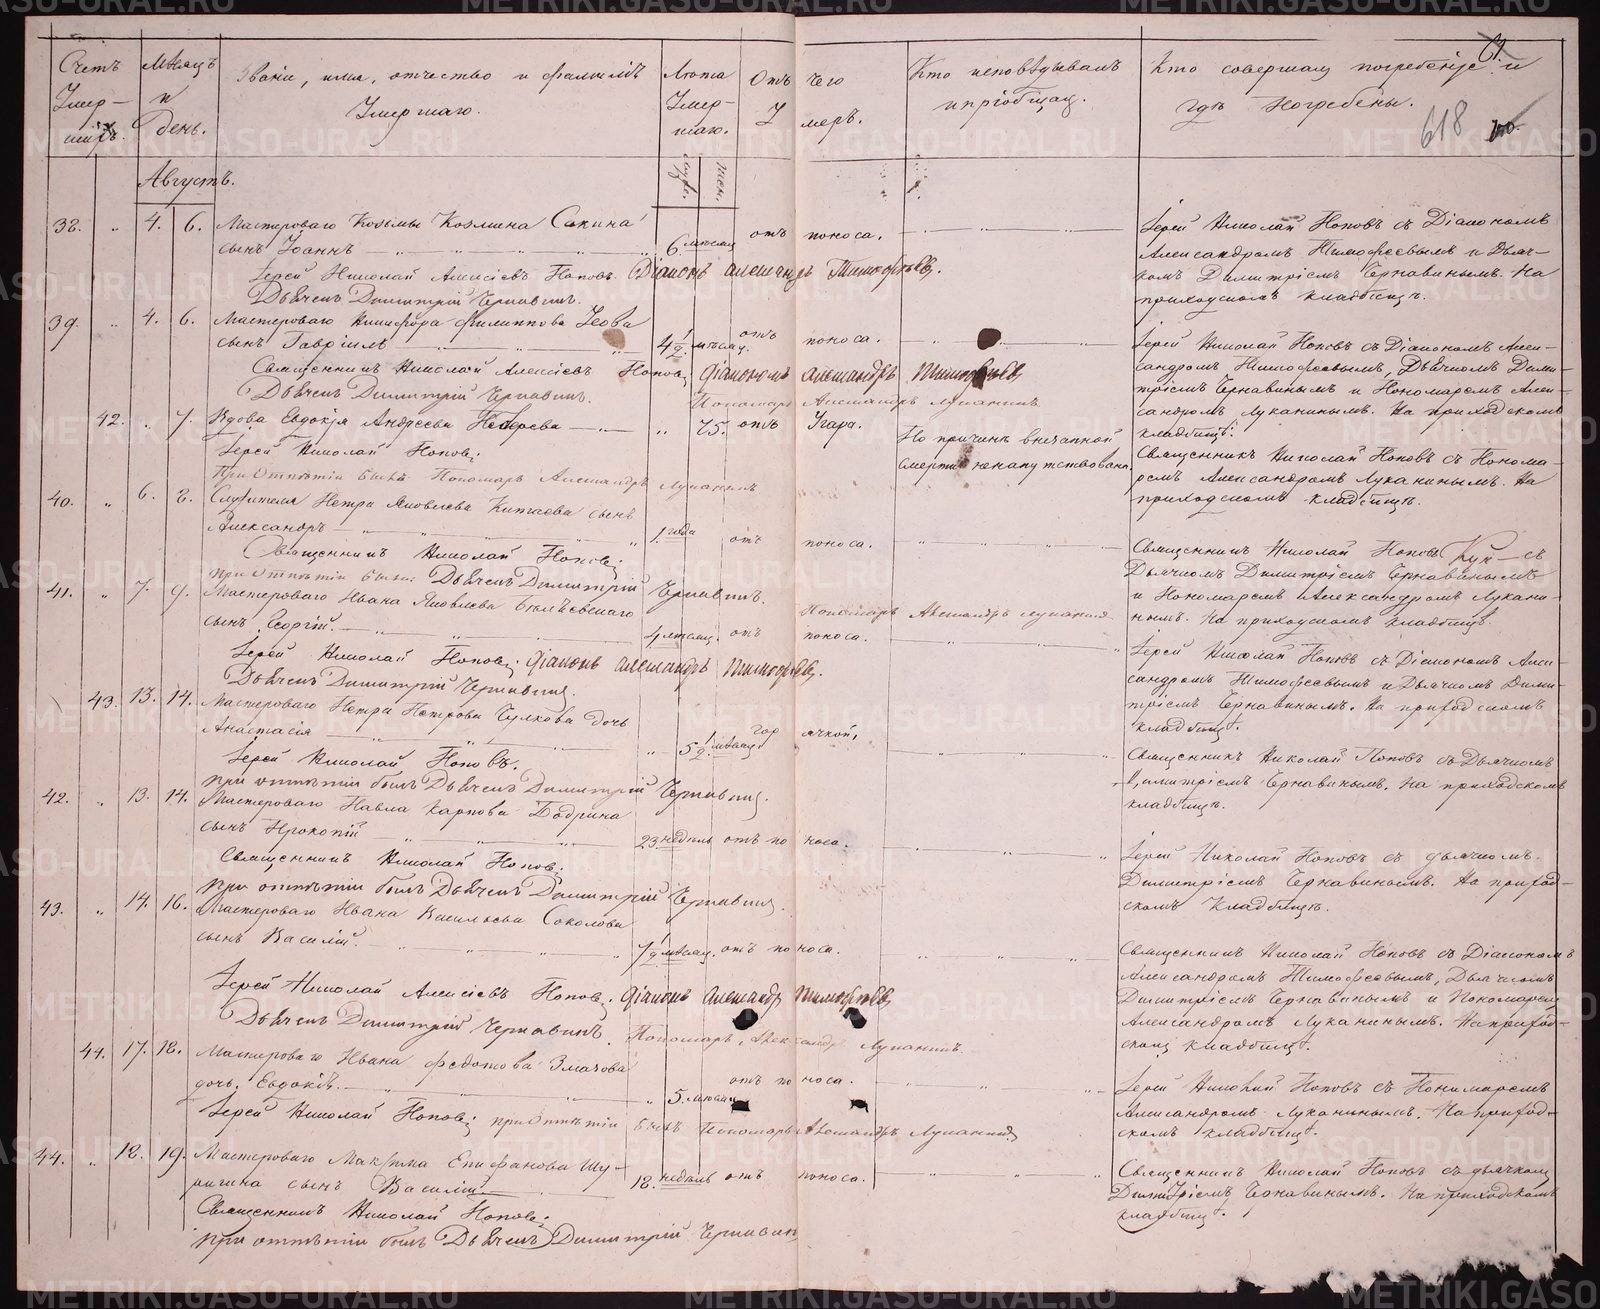 Счетъ Умер-шихъ.
Мѣсяцъ и день.
Званіе, имя, отчество и фамилія Умершаго.
Лета Умер-шаго.
Отъ чего Умеръ.
Кто исповѣдывалъ и пріобщал.
Кто совершалъ погребеніе и гдѣ Погребены.
618
Августъ.
муж. жен.
38. " 4. 6. Мастероваго Козьмы Козмина
сынъ Іоаннъ 6 месяц отъ поноса.
Іерей Николай Алексіевъ Поповъ. Діаконъ Александръ Тимофѣевъ.
Дьячекъ Димитрій Чернавинъ.
Іерей Николай Поповъ съ Діакономъ
Александромъ Тимофеевымъ и Дьяч-
комъ Димитріемъ Чернавинымъ. На
приходскомъ кладбищѣ.
39. " 4. 6. Мастероваго Никифора Филиппова
сынъ Гавріилъ 4 1/2 мѣсяц. отъ поноса.
Священникъ Николай Алексіевъ Поповъ. Діакономъ Александръ Тимофѣевъ
Дьячекъ Димитрій Чернавинъ. Пономарь Александръ Луканинъ
Іерей Николай Поповъ съ Діакономъ Алек-
сандромъ Тимофеевымъ, Дьячкомъ Дими-
тріемъ Чернавинымъ и Пономаремъ Алек-
сандромъ Луканинымъ. На приходскомъ
кладбищѣ.
42. " 7. Вдова Евдокія Андреева " 75. отъ Угара.
По причинѣ внезапной
смерти ненапутствована.
Іерей Николай Поповъ.
При Отпѣтіи былъ Пономарь Александръ Луканинъ
Священникъ Николай Поповъ съ Понома-
ремъ Александромъ Луканинымъ. На
приходскомъ кладбищѣ.
40. " 6. 8. Служителя Петра Яковлева Китаева сынъ
Александръ 1. года отъ поноса.
Священникъ Николай Поповъ.
при Отпѣтіи былъ Дьячекъ Димитрій Чернавинъ.
Пономарь Александръ Луканинъ
Священникъ Николай Поповъ съ
Дьячкомъ Димитріемъ Чернавинымъ
и Пономаремъ Александромъ Лукани-
нымъ. На приходскомъ кладбищѣ.
41. " 7. 9. Мастероваго Ивана Яковлева
сынъ Георгій. 4 месяц. отъ поноса.
Іерей Николай Поповъ. Діаконъ Александръ Тимофѣевъ.
Дьячекъ Димитрій Чернавинъ.
Іерей Николай Поповъ съ Діакономъ Алек-
сандромъ Тимофеевымъ и Дьячкомъ Дими-
тріемъ Чернавинымъ. На приходскомъ
кладбищѣ.
43. 13. 14. Мастероваго Петра Петрова Чулкова дочь
Анастасія " 5 1/2 мѣсяц. горячкой.
Іерей Николай Поповъ.
при отпѣтіи былъ Дьячекъ Димитрій Чернавинъ.
Священникъ Николай Поповъ съ Дьячкомъ
Димитріемъ Чернавинымъ. На приходскомъ
кладбищѣ.
42. " 13. 14. Мастероваго Павла Карпова Бодрина
сынъ Прокопій 23. недѣль отъ поноса.
Священникъ Николай Поповъ.
при отпѣтіи былъ Дьячекъ Димитрій Чернавинъ.
Іерей Николай Поповъ съ дьячкомъ
Димитріемъ Чернавинымъ. На приход-
скомъ Кладбищѣ.
43. " 14. 16. Мастероваго Ивана Васильева Соколова
сынъ Василій. 7 1/2 мѣсяц. отъ поноса.
Іерей Николай Алексіевъ Поповъ. Діаконъ Александр Тимофѣевъ
Дьячекъ Димитрій Чернавинъ. Пономарь Александръ Луканинъ.
Священникъ Николай Поповъ съ Діакономъ
Александромъ Тимофеевымъ, Дьячкомъ
Димитріемъ Чернавинымъ и Пономаремъ
Александромъ Луканинымъ. На приход-
скомъ кладбищѣ.
44. 17. 18. Мастероваго Ивана Федотова
дочь Евдокія. " 5. месяц отъ поноса.
Іерей Николай Поповъ. при Отпѣтіи былъ Пономарь Александръ Луканинъ
Іерей Николай Поповъ съ Пономаремъ
Александромъ Луканинымъ. На приход-
скомъ кладбищѣ.
44. " 18. 19. Мастероваго Максима Епифанова Шу-
сынъ Василій 18. недѣль отъ поноса.
Священникъ Николай Поповъ.
при отпѣтіи былъ Дьячекъ Димитрій Чернавинъ
Священникъ Николай Поповъ съ дьячкомъ
Димитріемъ Чернавинымъ. На приходскомъ
кладбищѣ.
METRIKI.GASO-URAL.RU